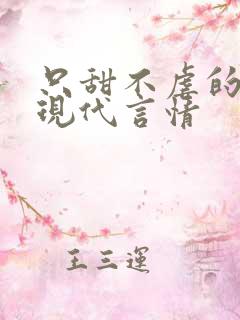 只甜不虐的
現代言情
王三運